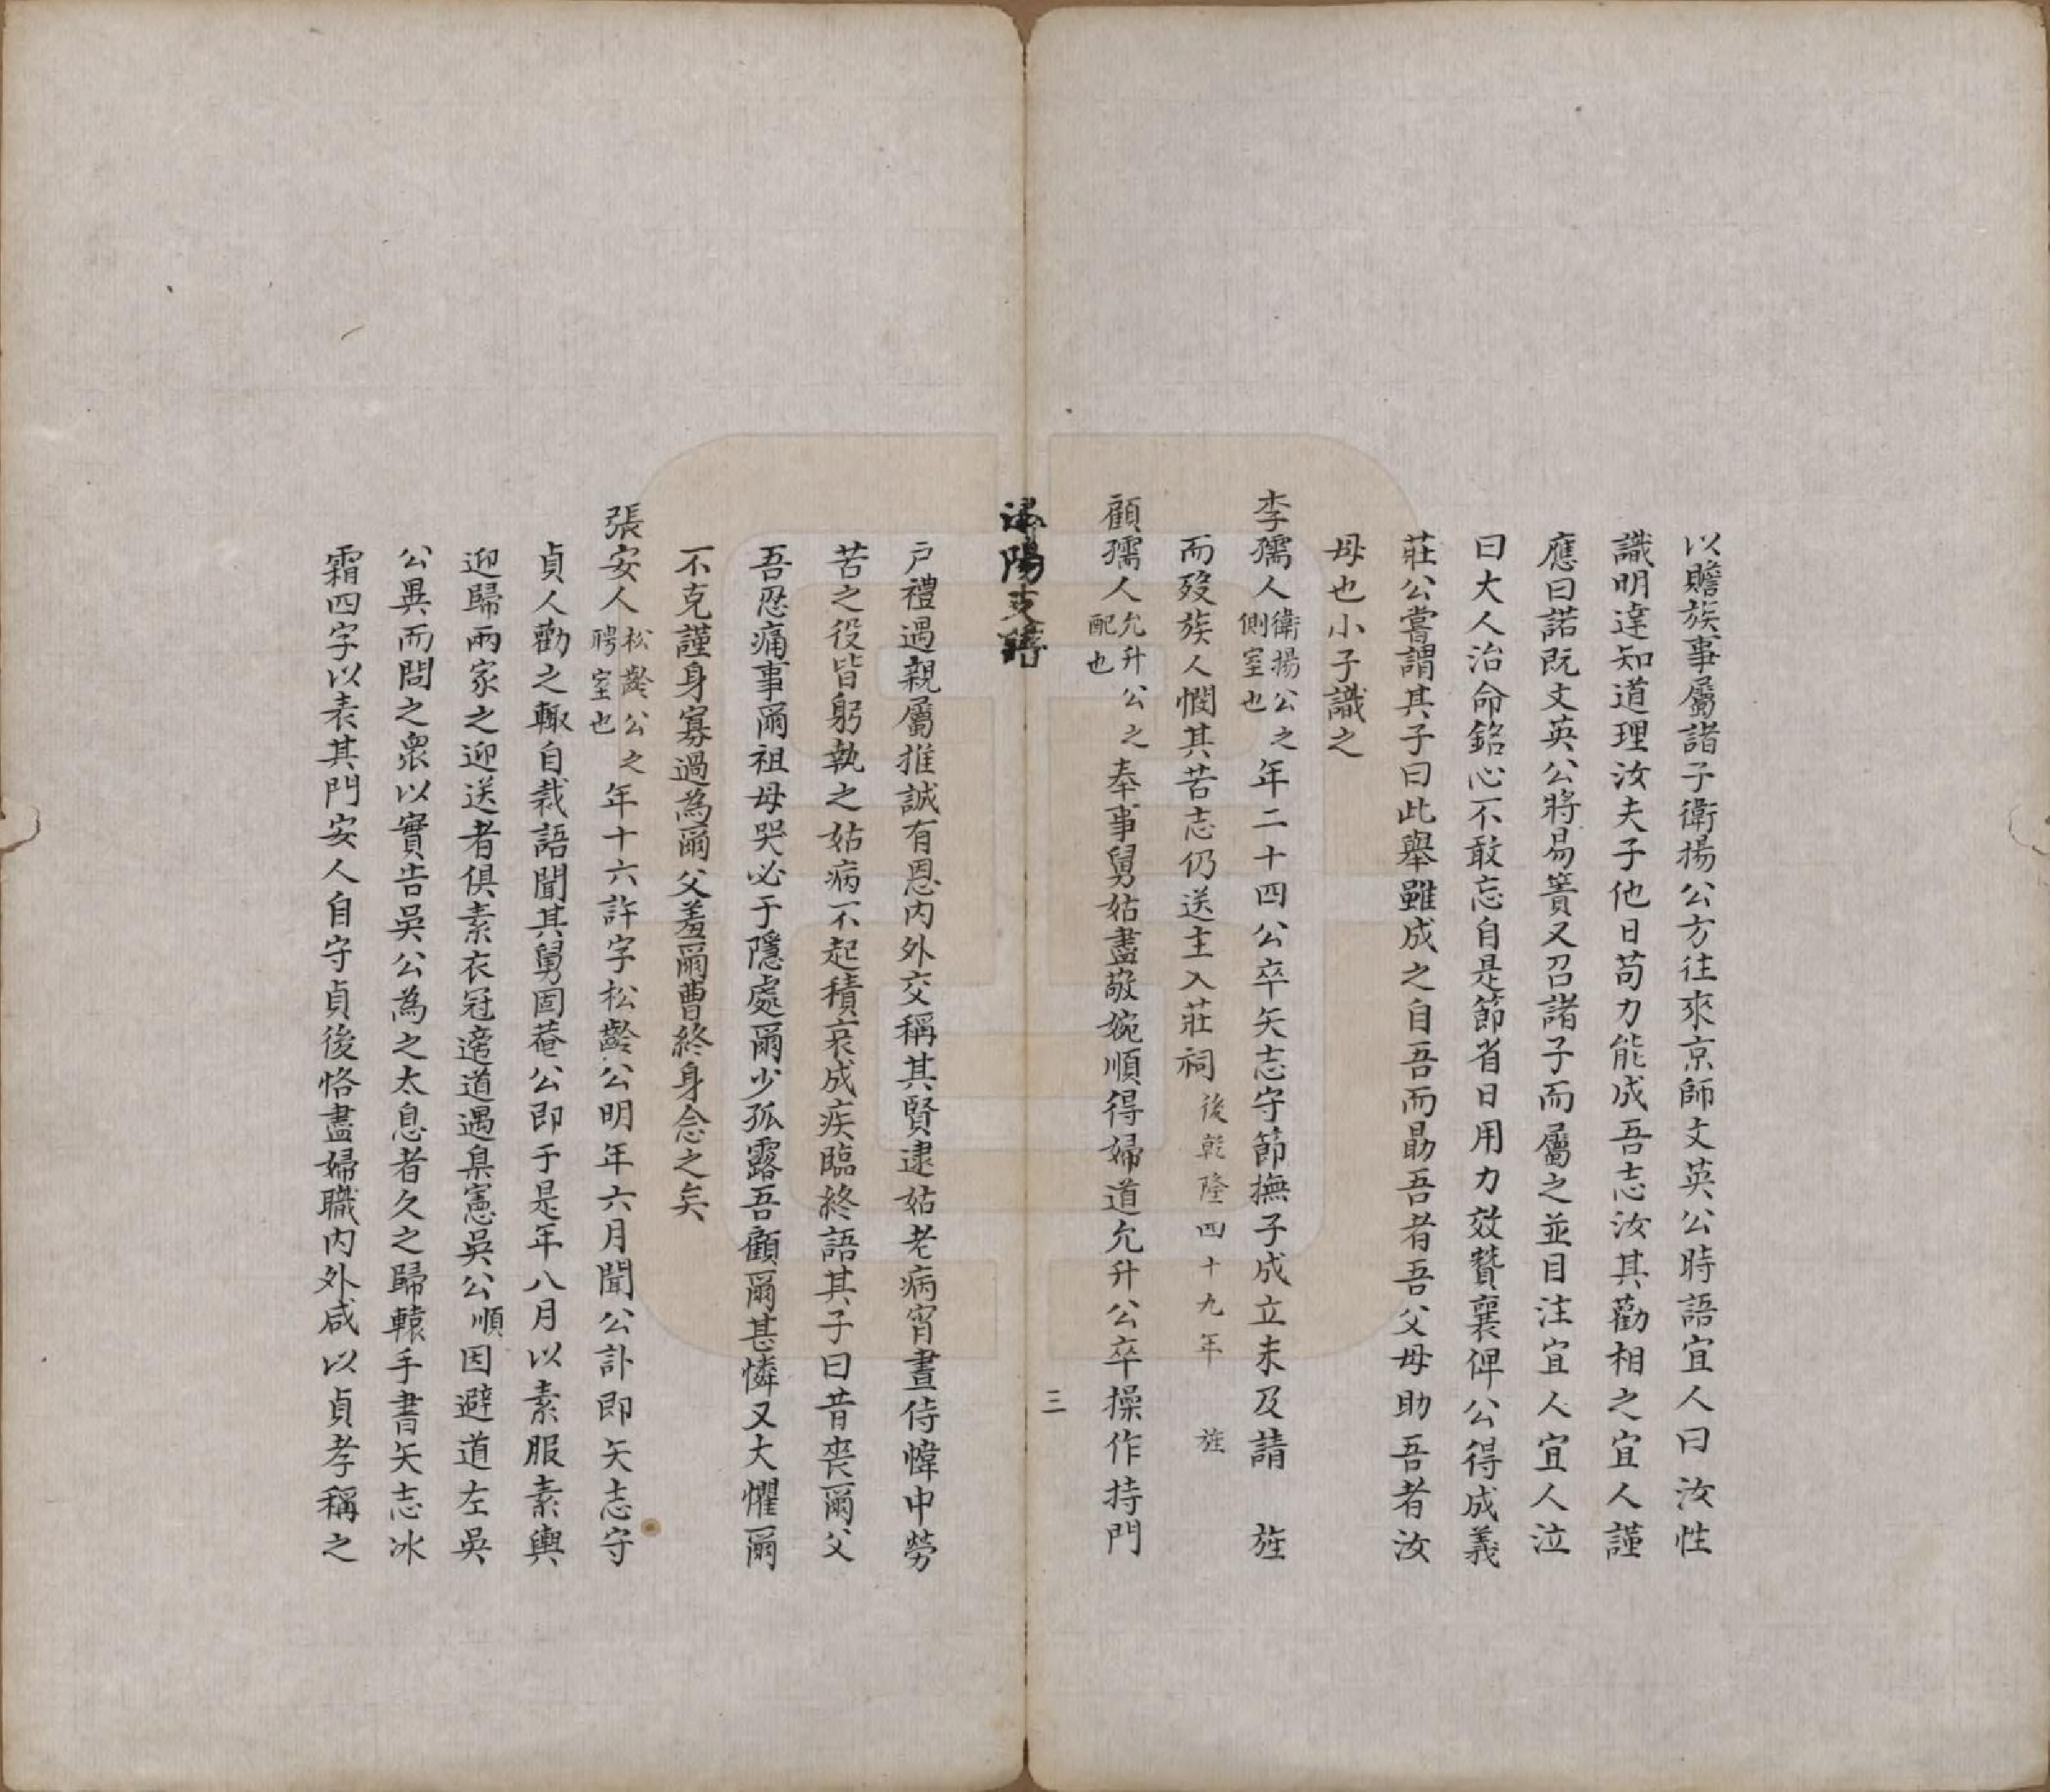 以贍族事屬諸子衛揚公方往來京師文英公時語宜人曰汝性
識明達知道理汝夫子他日苟力能成吾志汝其勸相之宜人謹
應曰諾既文英公將易簀又召諸子而屬之並目注宜人宜人泣
曰大人治命銘心不敢忘自是節省日用力效贊襄俾公得成義
莊公嘗謂其子曰此舉雖成之自吾而勗吾者吾父母助吾者汝
母也小子識之
李孺人衛揚公之側室也年二十四公卒矢志守節撫子成立未及請旌
而歿族人憫其苦志仍送主入莊祠後乾隆四十九年旌
顧孺人允升公之配也奉事舅姑盡敬婉順得婦道允升公卒操作持門
陽支譜
三
戶禮遇親屬推誠有恩內外交稱其賢逮姑老病宵晝侍幃中勞
苦之役皆躬執之姑病不起積哀成疾臨終語其子曰昔喪爾父
吾忍痛事爾祖母哭必于隱處爾少孤露吾顧爾甚憐又大懼爾
不克謹身寡過為爾父羞爾曹終身念之矣
張安人松齡公之聘室也年十六許字松齡公明年六月聞公訃即矢志守
貞人勸之輙自裁語聞其舅固菴公即于是年八月以素服素輿
迎歸兩家之迎送者俱素衣冠遵道遇臬憲吳公順因避道左吳
公異而問之眾以實告吳公為之太息者久之歸轅手書矢志冰
霜四字以表其門安人自守貞後恪盡婦職內外咸以貞孝稱之